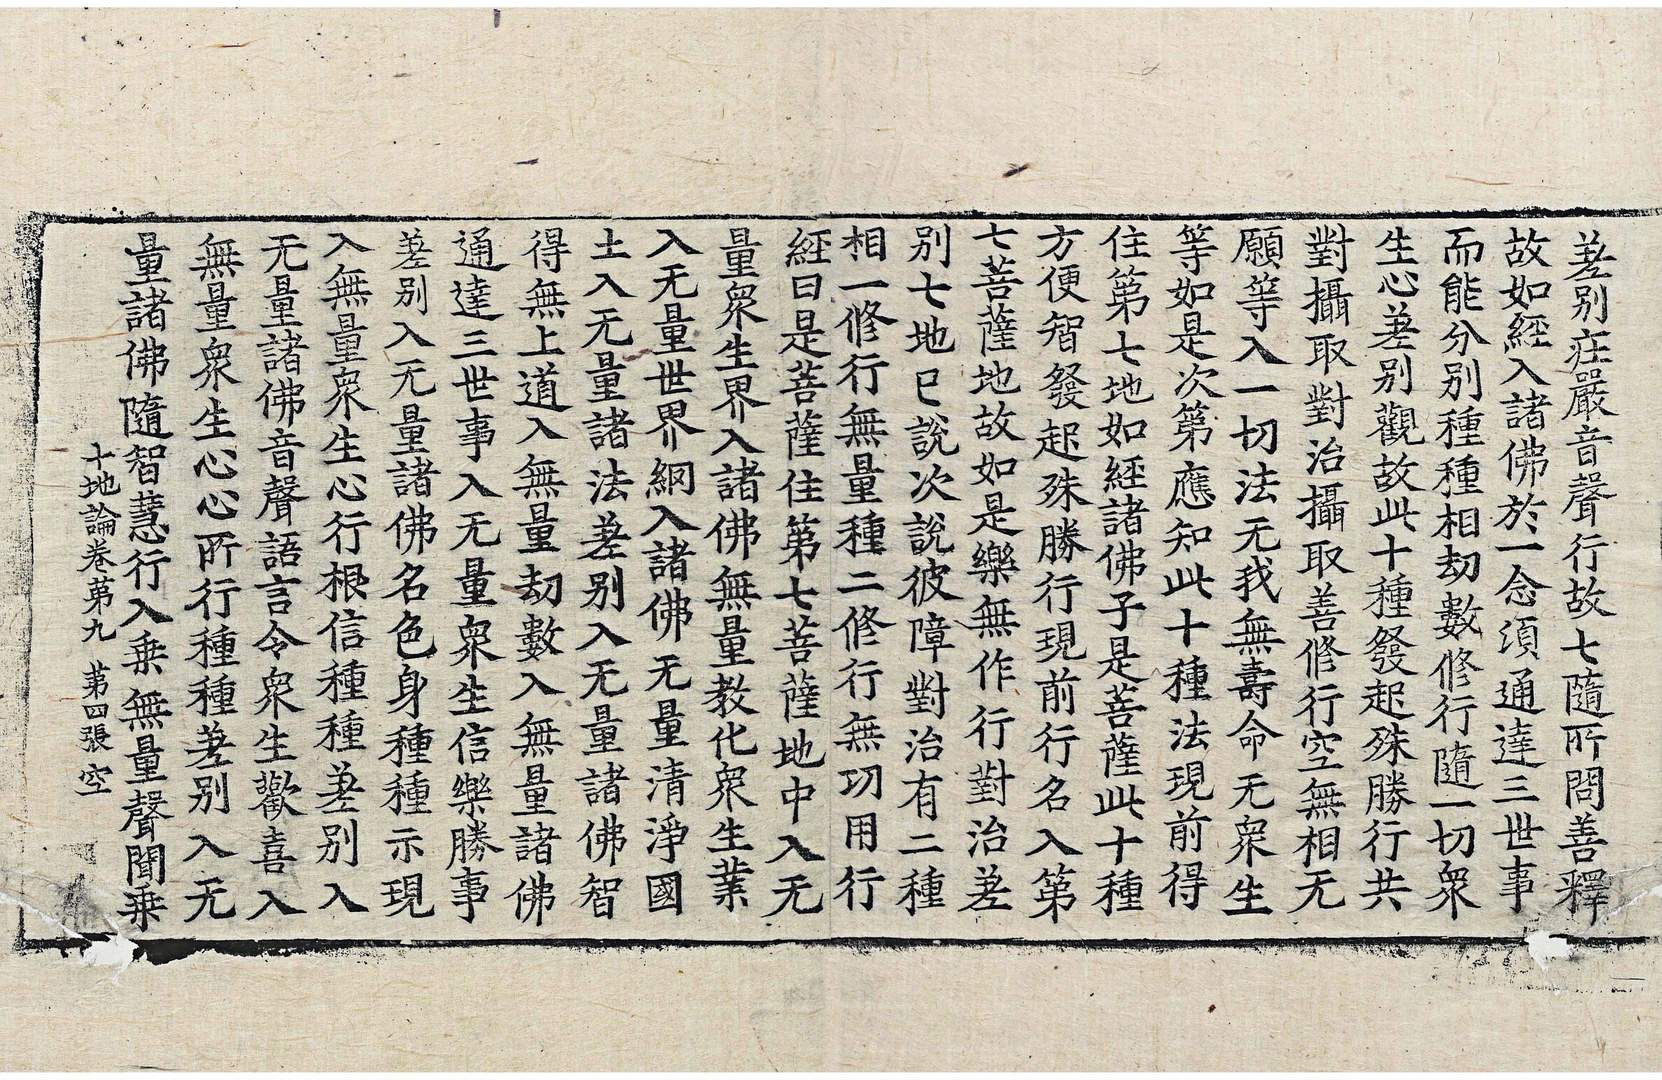 差別莊嚴音聲行故七隨所問善釋
故如經入諸佛於一念湏通達三世事
而能分別種種相劫數修行隨一切衆
生心差别觀故此十種發起殊勝行共
對攝取對治攝取善修行空無相无
願等入一切法无我無壽命无衆生
等如是次第應知此十種法現前得
住第七地如經諸佛子是菩薩此十種
方便智發起殊勝行現前行名入第
七菩薩地故如是樂無作行對治差
别七地已說次說彼障對治有二種
相一修行無量種二修行無功用行
經曰是菩薩住第七菩薩地中入无
量衆生界入諸佛無量教化衆生業
入无量世界網入諸佛无量清淨國
土入无量諸法差别入无量諸佛智
得無上道入無量劫數入無量諸佛
通達三世事入无量衆生信樂勝事
差别入无量諸佛名色身種種示現
入無量衆生心行根信種種差别入
无量諸佛音聲語言令衆生歡喜入
無量衆生心心所行種種差别入无
量諸佛隨智慧行入乗無量聲聞乗
十地論卷苐九 第四張 空